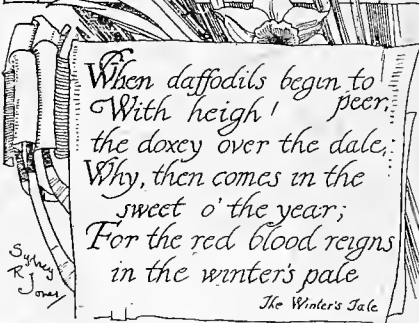 When daffodils begin to peer,
With heigh!
the doxey over the dale,
Why, then comes in the
sweet o' the year;
For the red blood reigns
in the winter's pale
The Winter's Tale
Sydney
R Jones